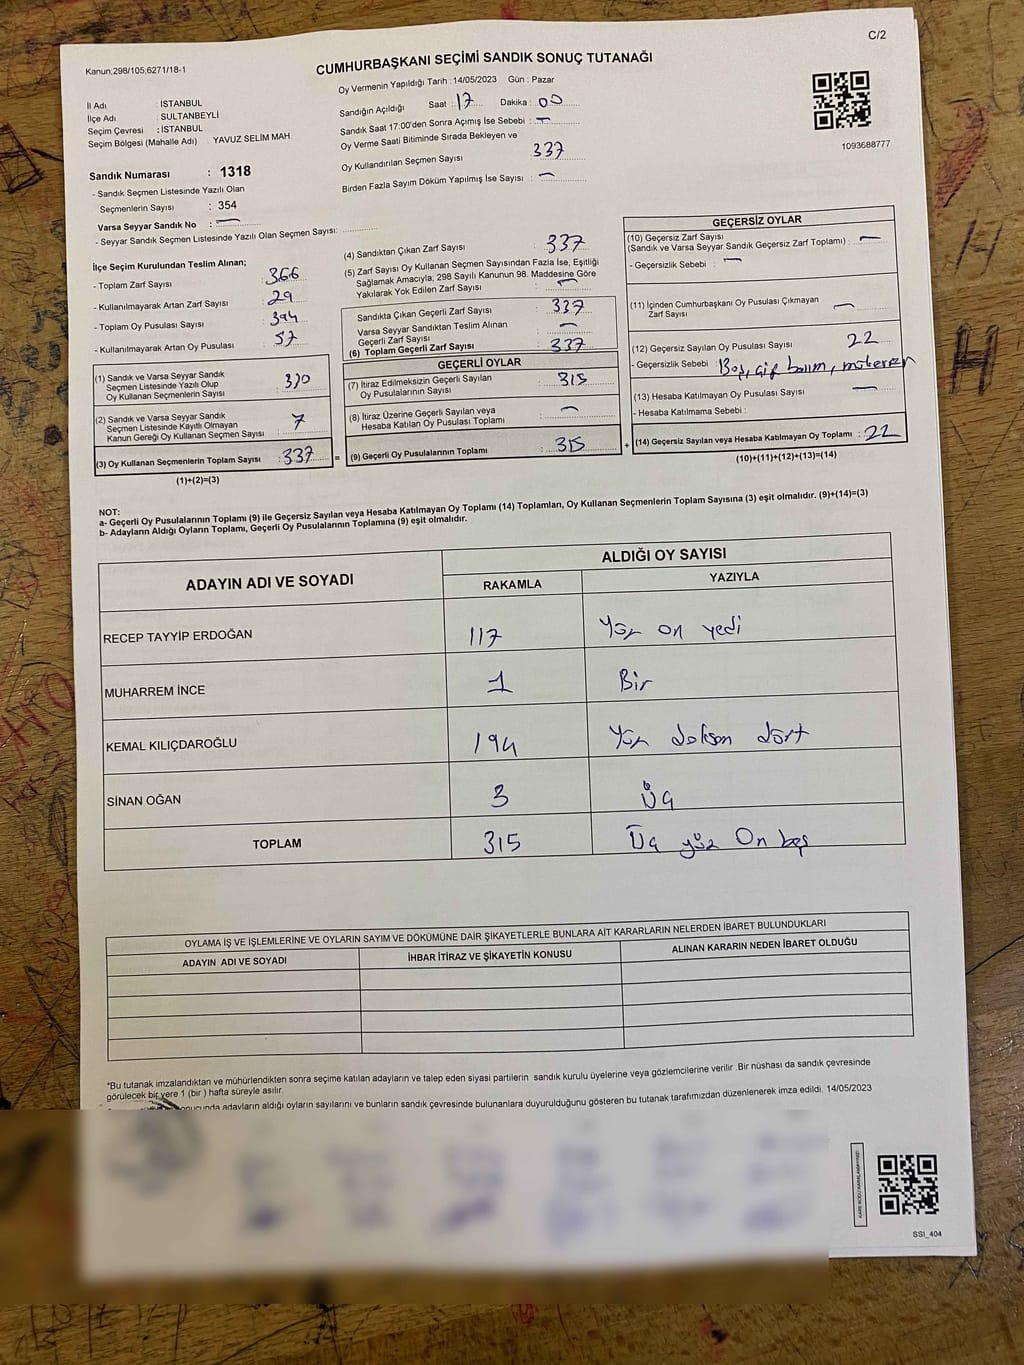 C/2
Kanun;298/105,6271/18-1
CUMHURBAŞKANI SEÇİMİ SANDIK SONUÇ TUTANAĞI
Oy Vermenin Yapıldığı Tarih : 14/05/2023 Gün : Pazar
İl Adı : İSTANBUL
İlçe Adı : SULTANBEYLİ
Seçim Çevresi : İSTANBUL
Seçim Bölgesi (Mahalle Adı) : YAVUZ SELİM MAH.
Sandığın Açıldığı Saat : 17 Dakika : 00
Sandık Saat 17:00'den Sonra Açımış İse Sebebi : —
Oy Verme Saati Bitiminde Sırada Bekleyen ve
Oy Kullandırılan Seçmen Sayısı 337
Birden Fazla Sayım Döküm Yapılmış İse Sayısı : —
1093688777
Sandık Numarası : 1318
- Sandık Seçmen Listesinde Yazılı Olan
Seçmenlerin Sayısı : 354
Varsa Seyyar Sandık No : —
- Seyyar Sandık Seçmen Listesinde Yazılı Olan Seçmen Sayısı:
İlçe Seçim Kurulundan Teslim Alınan;
- Toplam Zarf Sayısı : 366
- Kullanılmayarak Artan Zarf Sayısı : 29
- Toplam Oy Pusulası Sayısı : 394
- Kullanılmayarak Artan Oy Pusulası : 57
(1) Sandık ve Varsa Seyyar Sandık
Seçmen Listesinde Yazılı Olup
Oy Kullanan Seçmenlerin Sayısı : 330
(2) Sandık ve Varsa Seyyar Sandık
Seçmen Listesinde Kayıtlı Olmayan
Kanun Gereği Oy Kullanan Seçmen Sayısı : 7
(3) Oy Kullanan Seçmenlerin Toplam Sayısı : 337
(1)+(2)=(3)
(4) Sandıktan Çıkan Zarf Sayısı : 337
(5) Zarf Sayısı Oy Kullanan Seçmen Sayısından Fazla İse, Eşitliği
Sağlamak Amacıyla; 298 Sayılı Kanunun 98. Maddesine Göre
Yakılarak Yok Edilen Zarf Sayısı : —
Sandıkta Çıkan Geçerli Zarf Sayısı : 337
Varsa Seyyar Sandıktan Teslim Alınan
Geçerli Zarf Sayısı : —
(6) Toplam Geçerli Zarf Sayısı : 337
GEÇERLİ OYLAR
(7) İtiraz Edilmeksizin Geçerli Sayılan
Oy Pusulalarının Sayısı : 315
(8) İtiraz Üzerine Geçerli Sayılan veya
Hesaba Katılan Oy Pusulası Toplamı : —
(9) Geçerli Oy Pusulalarının Toplamı : 315
GEÇERSİZ OYLAR
(10) Geçersiz Zarf Sayısı
(Sandık ve Varsa Seyyar Sandık Geçersiz Zarf Toplamı) : —
- Geçersizlik Sebebi : —
(11) İçinden Cumhurbaşkanı Oy Pusulası Çıkmayan
Zarf Sayısı : —
(12) Geçersiz Sayılan Oy Pusulası Sayısı : 22
- Geçersizlik Sebebi : Boş,
(13) Hesaba Katılmayan Oy Pusulası Sayısı : —
- Hesaba Katılmama Sebebi :
(14) Geçersiz Sayılan veya Hesaba Katılmayan Oy Toplamı : 22
(10)+(11)+(12)+(13)=(14)
NOT:
a- Geçerli Oy Pusulalarının Toplamı (9) ile Geçersiz Sayılan veya Hesaba Katılmayan Oy Toplamı (14) Toplamları, Oy Kullanan Seçmenlerin Toplam Sayısına (3) eşit olmalıdır. (9)+(14)=(3)
b- Adayların Aldığı Oyların Toplamı, Geçerli Oy Pusulalarının Toplamına (9) eşit olmalıdır.
ADAYIN ADI VE SOYADI ALDIĞI OY SAYISI
RAKAMLA YAZIYLA
RECEP TAYYİP ERDOĞAN 117 Yüz on yedi
MUHARREM İNCE 1 Bir
KEMAL KILIÇDAROĞLU 194 Yüz doksan dört
SİNAN OĞAN 3 Üç
TOPLAM 315 Üç yüz On beş
OYLAMA İŞ VE İŞLEMLERİNE VE OYLARIN SAYIM VE DÖKÜMÜNE DAİR ŞİKAYETLERLE BUNLARA AİT KARARLARIN NELERDEN İBARET BULUNDUKLARI
ADAYIN ADI VE SOYADI İHBAR İTİRAZ VE ŞİKAYETİN KONUSU ALINAN KARARIN NEDEN İBARET OLDUĞU
*Bu tutanak imzalandıktan ve mühürlendikten sonra seçime katılan adayların ve talep eden siyasi partilerin sandık kurulu üyelerine veya gözlemcilerine verilir .Bir nüshası da sandık çevresinde
görülecek bir yere 1 (bir ) hafta süreyle asılır.
adayların aldığı oyların sayılarını ve bunların sandık çevresinde bulunanlara duyurulduğunu gösteren bu tutanak tarafımızdan düzenlenerek imza edildi. 14/05/2023
SSI_404